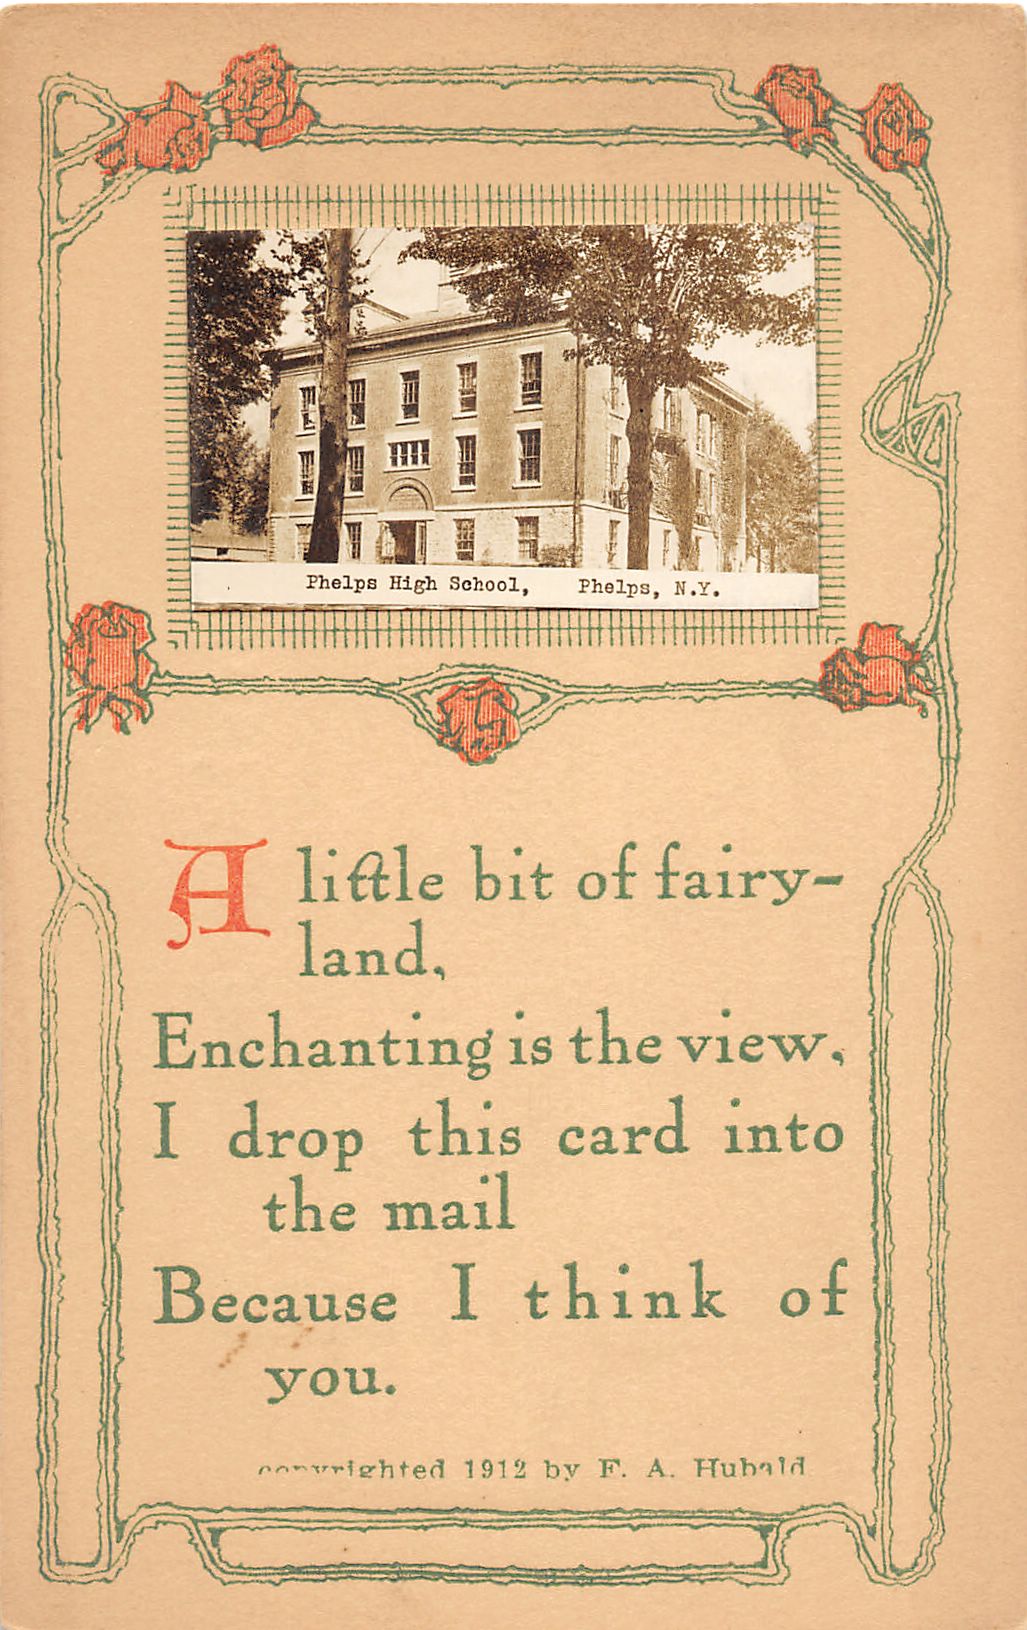 Phelps High School, Phelps, N.Y.
A little bit of fairy-
land,
Enchanting is the view,
I drop this card into
the mail
Because I think of
you.
copyrighted 1912 by F. A. Hubald